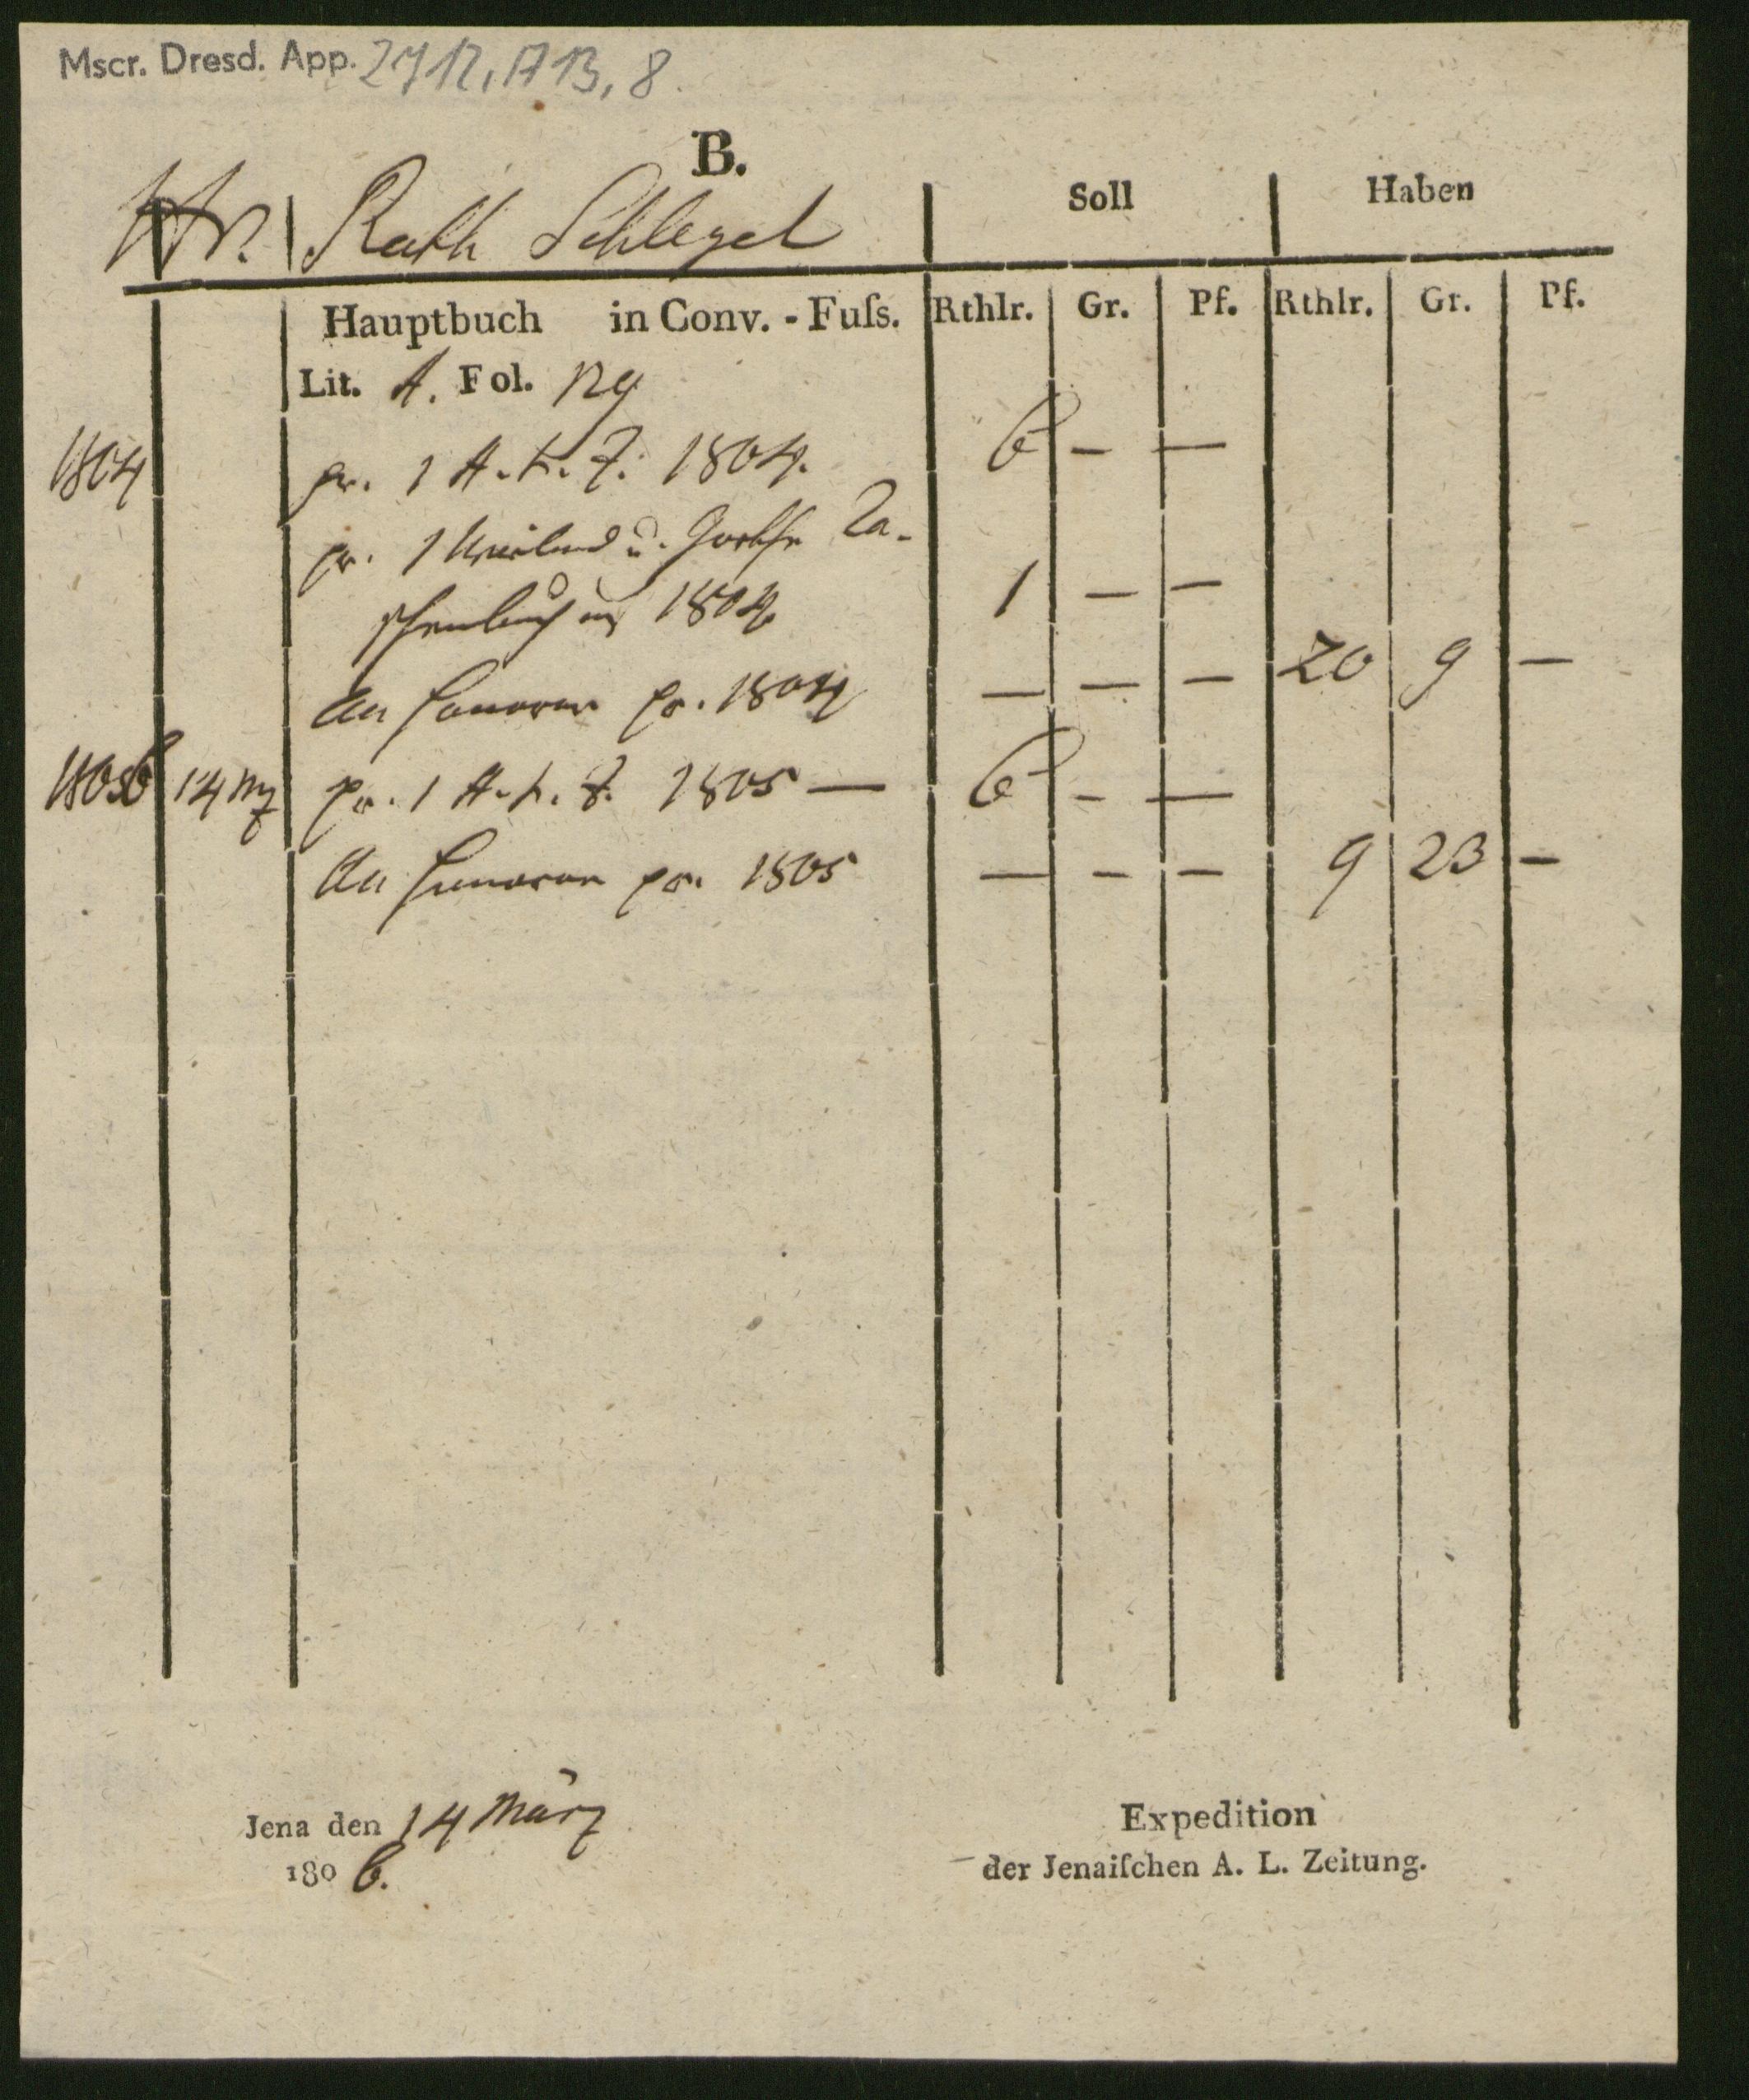 Mscr. Dresd. App. 2712, A13, 8.
B.
Hr. Rath Schlegel
Soll Haben
Hauptbuch in Conv. - Fuſs. Rthlr. Gr. Pf. Rthlr. Gr. Pf.
Lit. A. Fol. 129
1804 pr. 1 A. L. Z. 1804. 6 — —
pr. 1 Wieland u. Goethe Ta-
schenbuch auf 1804 1 — —
An Honorar pr. 1804 — — — 20 9 —
1806 14 Mz pr. 1 A. L. Z. 1805 — 6 — —
An Honorar pr. 1805 — — — 9 23 —
Jena den 14 März
1806.
Expedition
der Jenaiſchen A. L. Zeitung.